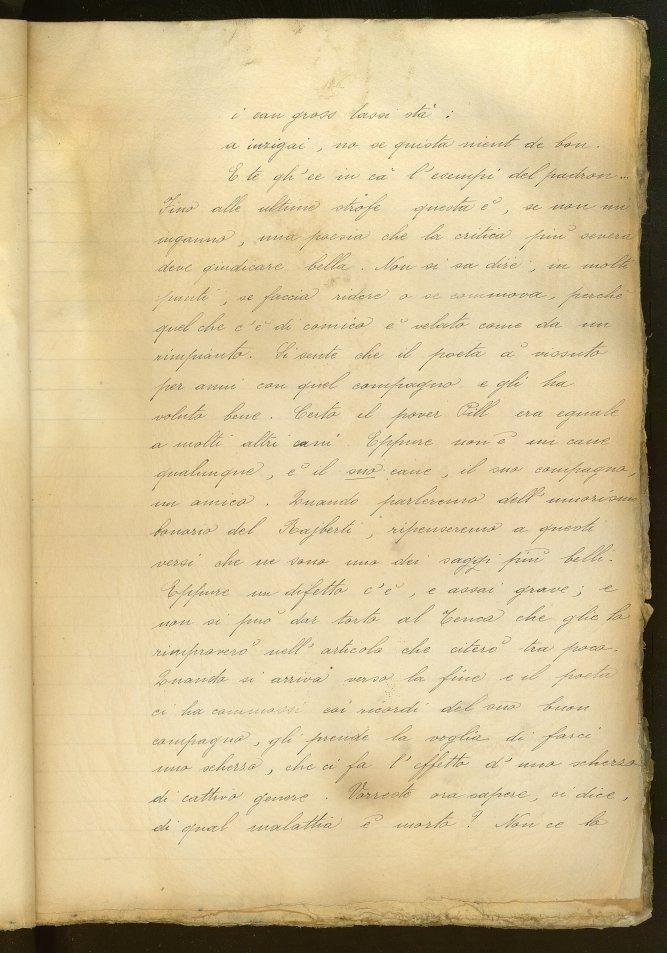 i can gross lassi stà ;
a inzigai, no se quista nient de bon.
E te gh'ee in cà l'esempi del padron...
Fino alle ultime strofe questa è, se non un
inganno, una poesia che la critica più severa
deve giudicare bella. Non si sa dire, in molti
punti, se faccia ridere o se commova, perchè
quel che c'è di comico è velato come da un
rimpianto. Si sente che il poeta à vissuto
per anni con quel compagno e gli ha
voluto bene. Certo il pover Pill era eguale
a molti altri cani. Eppure non è un cane
qualunque, è il suo cane, il suo compagno,
un amico. Quando parleremo dell'umorismo
bonario del Rajberti, ripenseremo a questi
versi che ne sono uno dei saggi più belli.
Eppure un difetto c'è, e assai grave; e
non si può dar torto al Tenca che glie lo
rimproverò nell'articolo che citerò tra poco.
Quando si arriva verso la fine e il poeta
ci ha commossi coi ricordi del suo buon
compagno, gli prende la voglia di farci
uno scherzo, che ci fa l'effetto d'uno scherzo
di cattivo genere. Vorreste ora sapere, ci dice,
di qual malattia è morto? Non ce lo